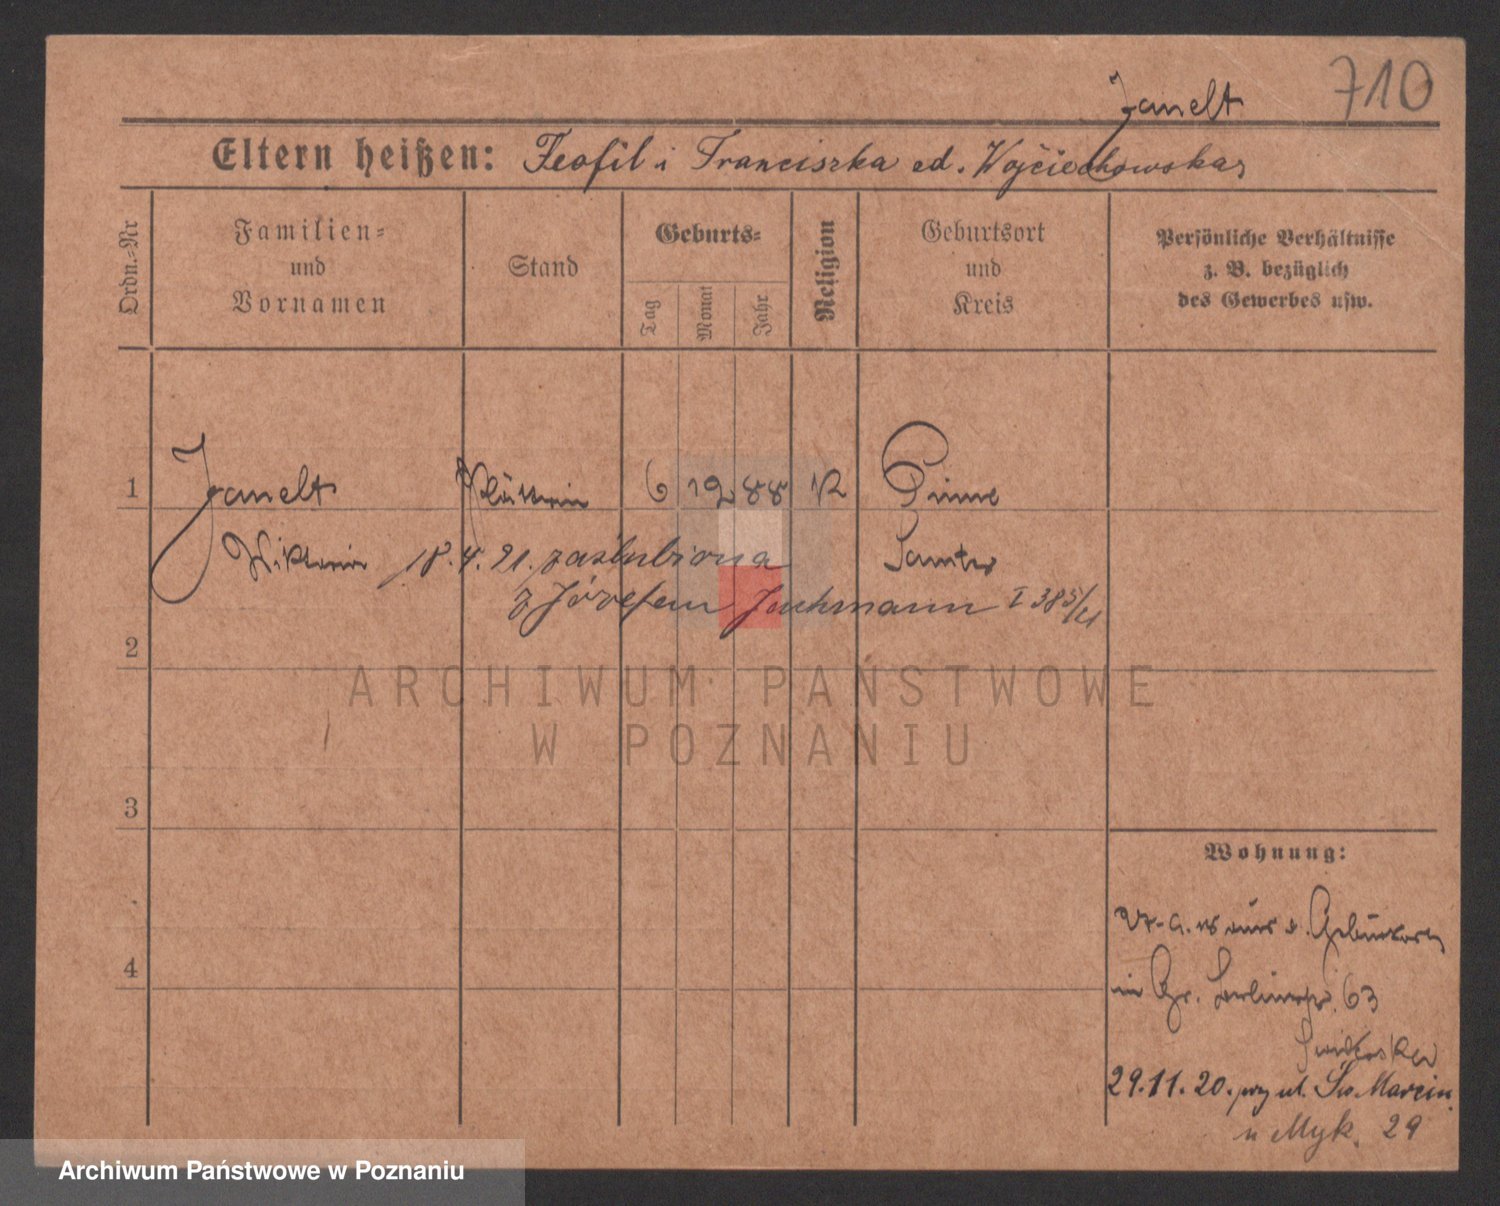 710
Janelt
Eltern heißen: Teofil i Franciszka ed. Wojciechowska
Ordn.-Nr
Familien= und Vornamen
Stand
Geburts=
Tag
Monat
Jahr
Religion
Geburtsort und Kreis
Persönliche Verhältnisse
z. B. bezüglich
des Gewerbes usw.
1 Janelt Plätterin 6 12 88 K Pinne
Wiktoria 18.4.21. zaślubiona Samter
z Józefem Jachmann I 385/21
2
ARCHIWUM PAŃSTWOWE
W POZNANIU
3
Wohnung:
aus d. Geburtsort
4
in Gr. Berlinerstr. 63
29.11.20. przy ul. Św. Marcin
u Myk. 29
Archiwum Państwowe w Poznaniu